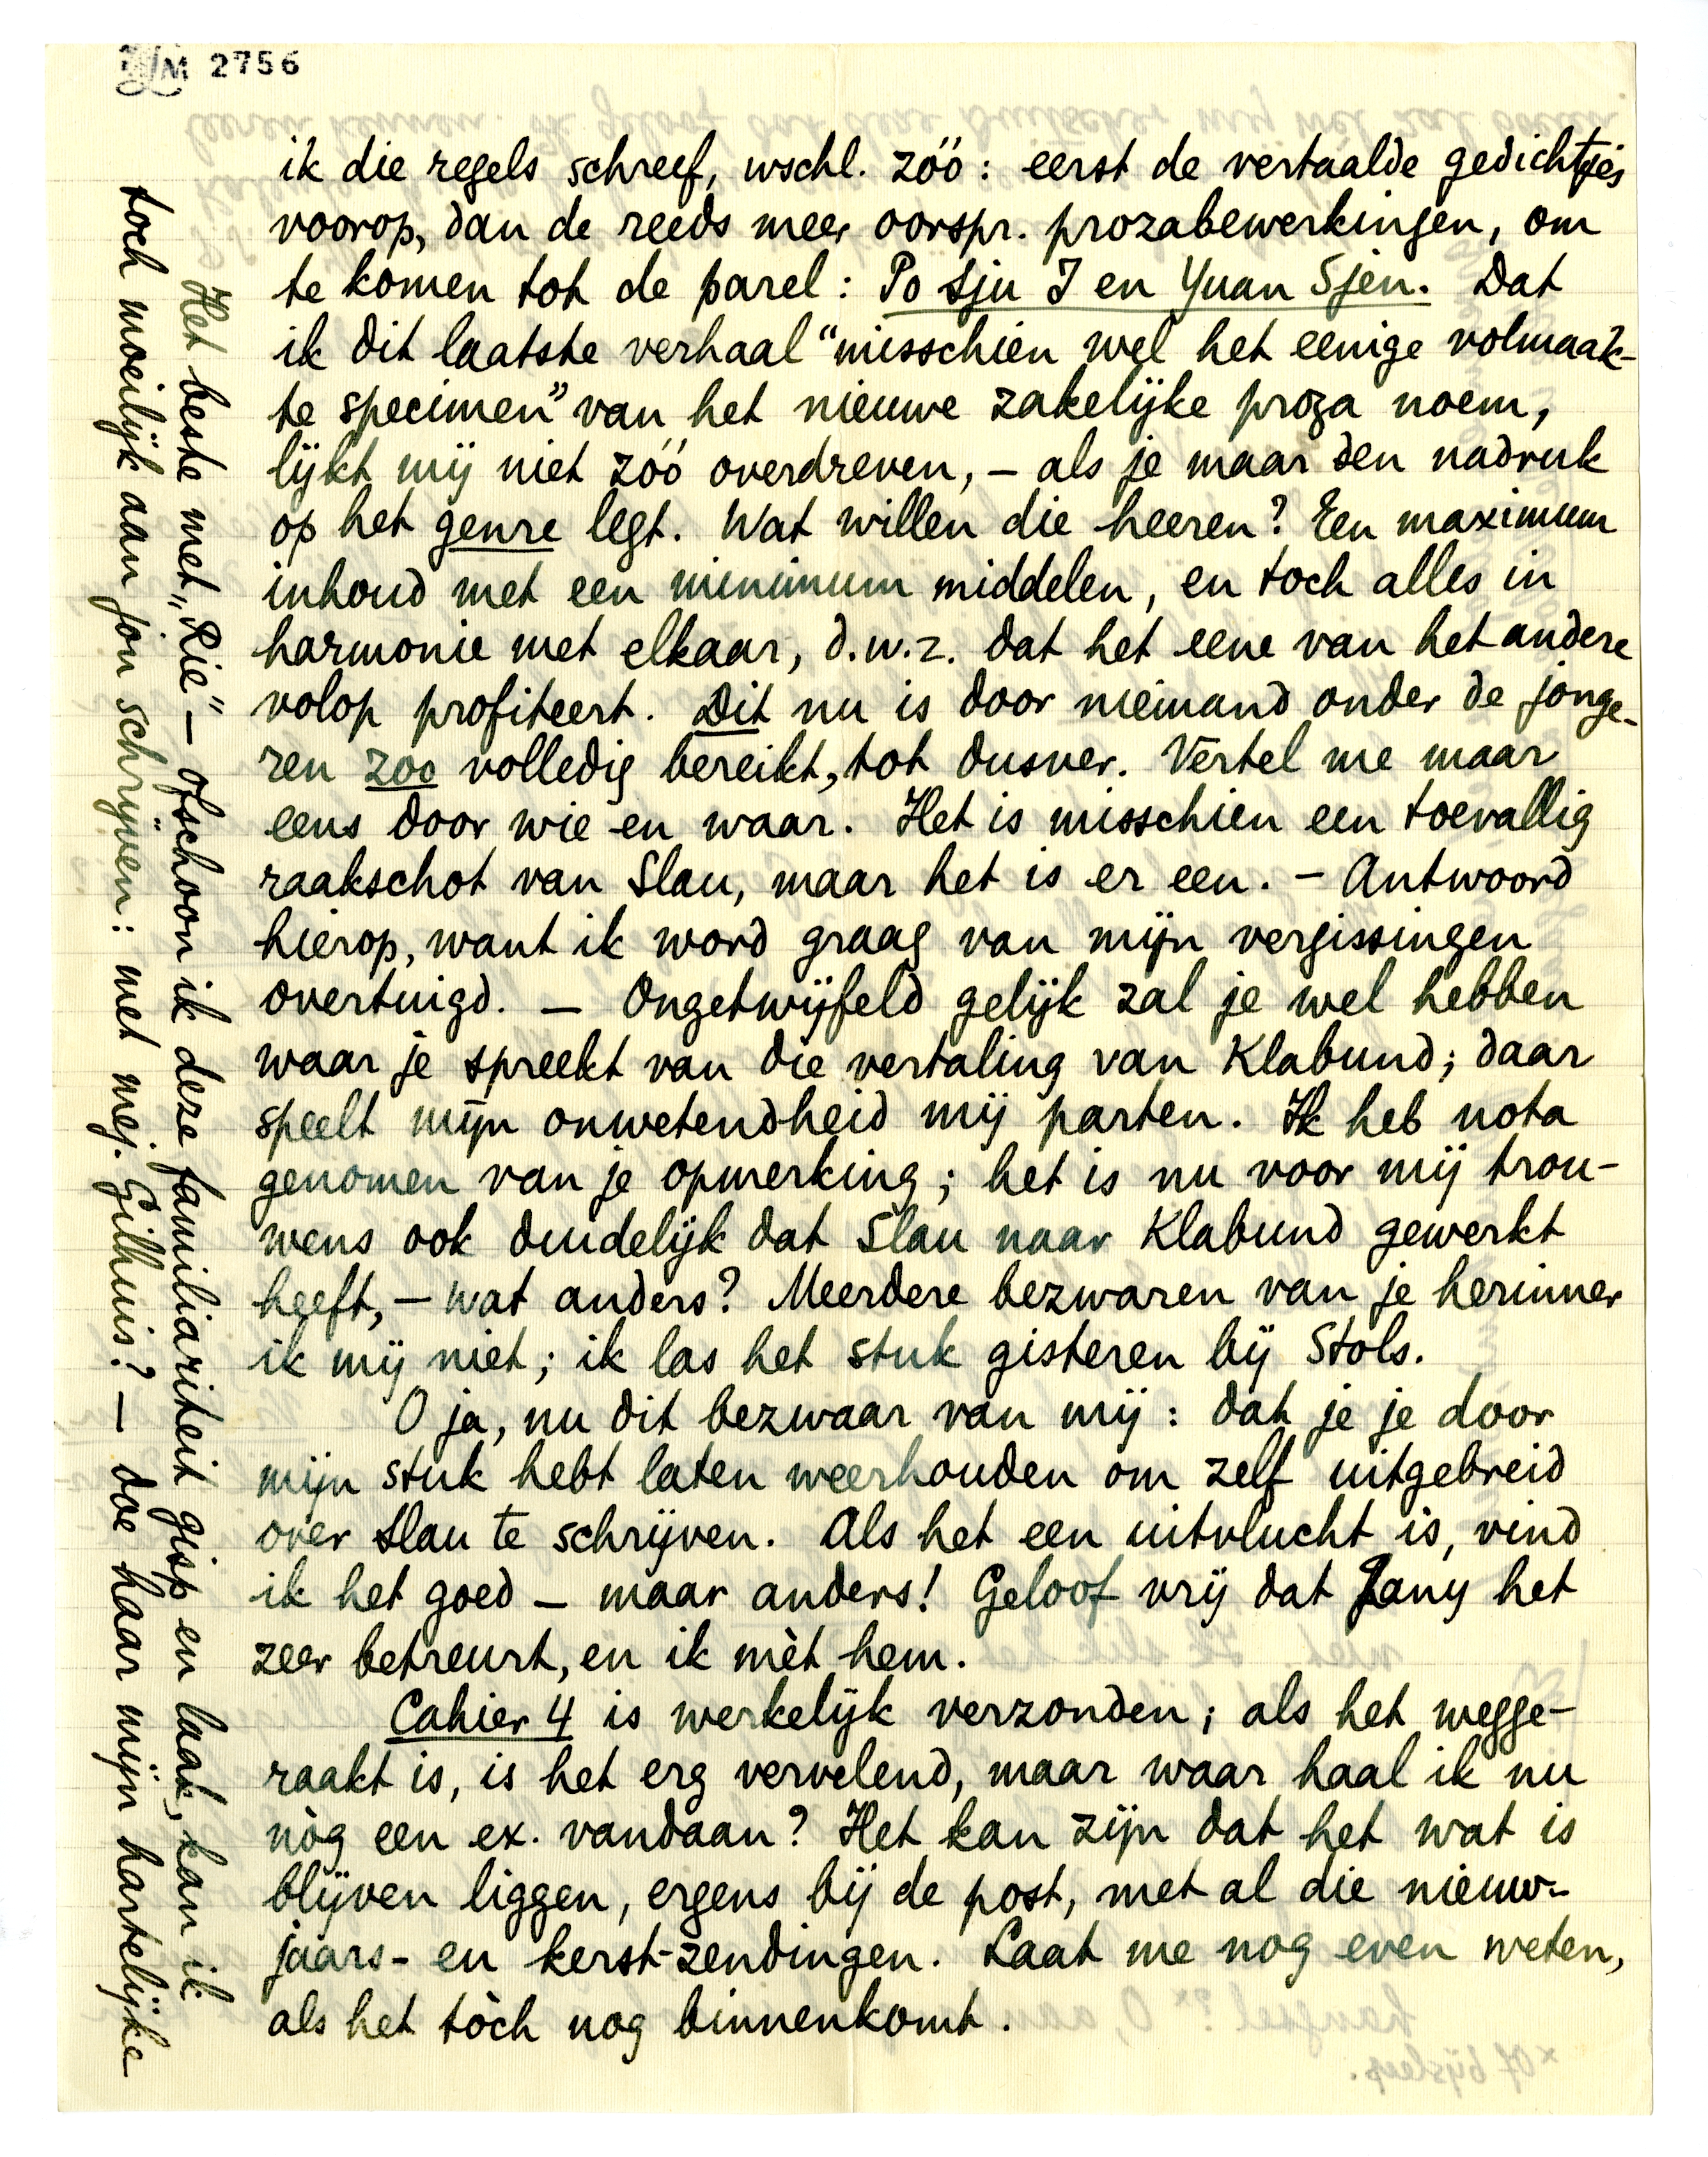 LM 2756
ik die regels schreef, wschl. zóó: eerst de vertaalde gedichtjes
voorop, dan de reeds meer oorspr. prozabewerkingen, om
te komen tot de parel: Po Sju I en Yuan Sjen. Dat
ik dit laatste verhaal "misschien wel het eenige volmaak-
te specimen" van het nieuwe zakelijke proza noem,
lijkt mij niet zóó overdreven, – als je maar den nadruk
op het genre legt. Wat willen die heeren? Een maximum
inhoud met een minimum middelen, en toch alles in
harmonie met elkaar, d.w.z. dat het eene van het andere
volop profiteert. Dit nu is door niemand onder de jonge-
ren zoo volledig bereikt, tot dusver. Vertel me maar
eens door wie en waar. Het is misschien een toevallig
raakschot van Slau, maar het is er een. – Antwoord
hierop, want ik word graag van mijn vergissingen
overtuigd. – Ongetwijfeld gelijk zal je wel hebben
waar je spreekt van die vertaling van Klabund; daar
speelt mijn onwetendheid mij parten. Ik heb nota
genomen van je opmerking; het is nu voor mij trou-
wens ook duidelijk dat Slau naar Klabund gewerkt
heeft, – wat anders? Meerdere bezwaren van je herinner
ik mij niet; ik las het stuk gisteren bij Stols.
O ja, nu dit bezwaar van mij: dat je je door
mijn stuk hebt laten weerhouden om zelf uitgebreid
over Slau te schrijven. Als het een uitvlucht is, vind
ik het goed – maar anders! Geloof vrij dat Jany het
zeer betreurt, en ik mèt hem.
Cahier 4 is werkelijk verzonden; als het wegge-
raakt is, is het erg vervelend, maar waar haal ik nu
nòg een ex. vandaan? Het kan zijn dat het wat is
blijven liggen, ergens bij de post, met al die nieuw-
jaars- en kerst-zendingen. Laat me nog even weten,
als het tòch nog binnenkomt.
Het beste met „Rie" – ofschoon ik deze familiariteit gisp en laak, kan ik
toch moeilijk aan jou schrijven: met mej. Gilhuis? – doe haar mijn hartelijke